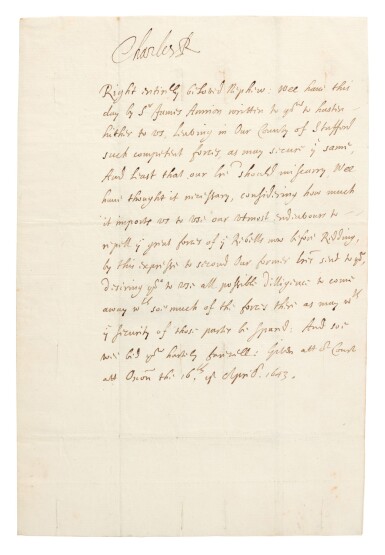 Charles R
Right entirely beloved Nephew. Wee have this
day by Sr James written to you to hasten
hither to us. Leaving in Our County of Stafford
such competent forces as may secure ye same,
And Least that our lre should miscarry Wee
have thought it necessary, considering how much
it imports us to use our utmost endeavour to
repell ye great forces of ye Rebells now before Redding,
by this expresse to second Our former lre sent to you,
desiring you to use all possible dilligence to come
away wth soe much of the forces there as may wth
ye security of those partes be spared: And soe
wee bid you hartely farewell: Given att Or Court
att Oxon the 16th of April. 1643.